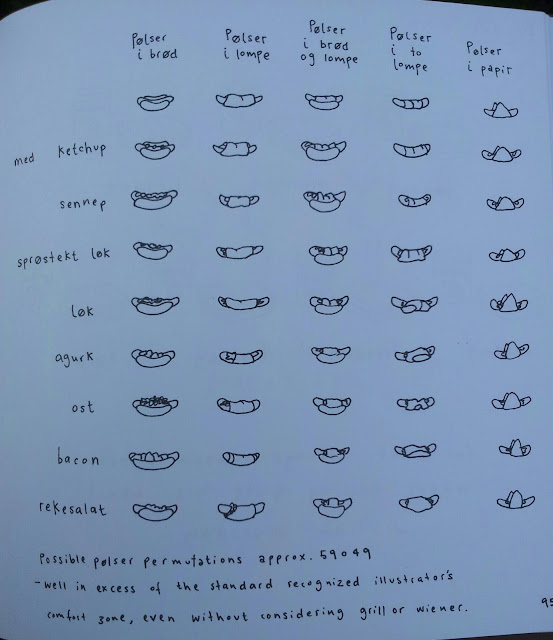 Pølser i brød
Pølser i lompe
Pølser i brød og lompe
Pølser i to lompe
Pølser i papir
med ketchup
sennep
sprøstekt løk
løk
agurk
ost
bacon
rekesalat
Possible pølser permutations approx. 59049
- well in excess of the standard recognized illustrator's
comfort zone, even without considering grill or wiener.